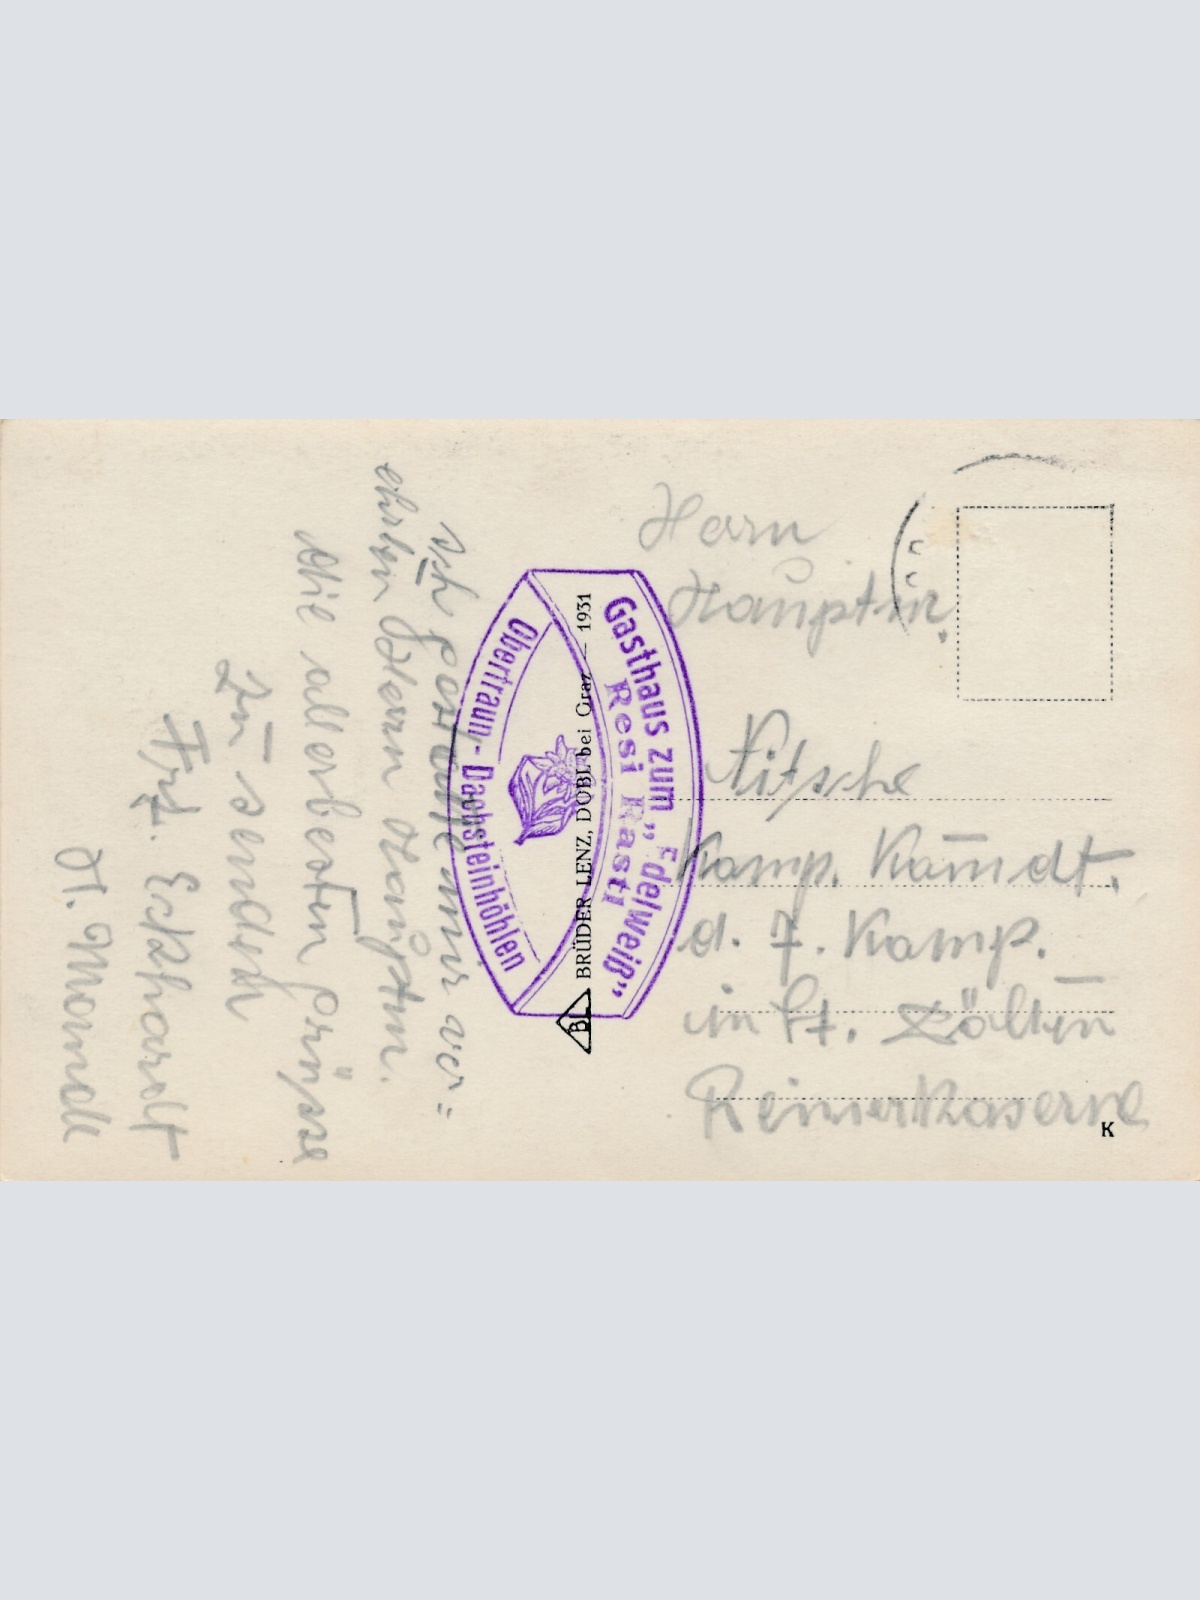 Ich gestatte mir ver=
ehrten Herrn Hauptm.
die allerbesten Grüsse
zu senden
Frz. Eckhardt
Gasthaus zum „Edelweiß"
Resi Rastl
Obertraun - Dachsteinhöhlen
BL BRÜDER LENZ, DOBL bei Graz — 1931
Herrn
Hauptm.
Nitsche
Komp. Kom̄dt.
d. 7. Komp.
in St. Pölten
Rennerkaserne
K